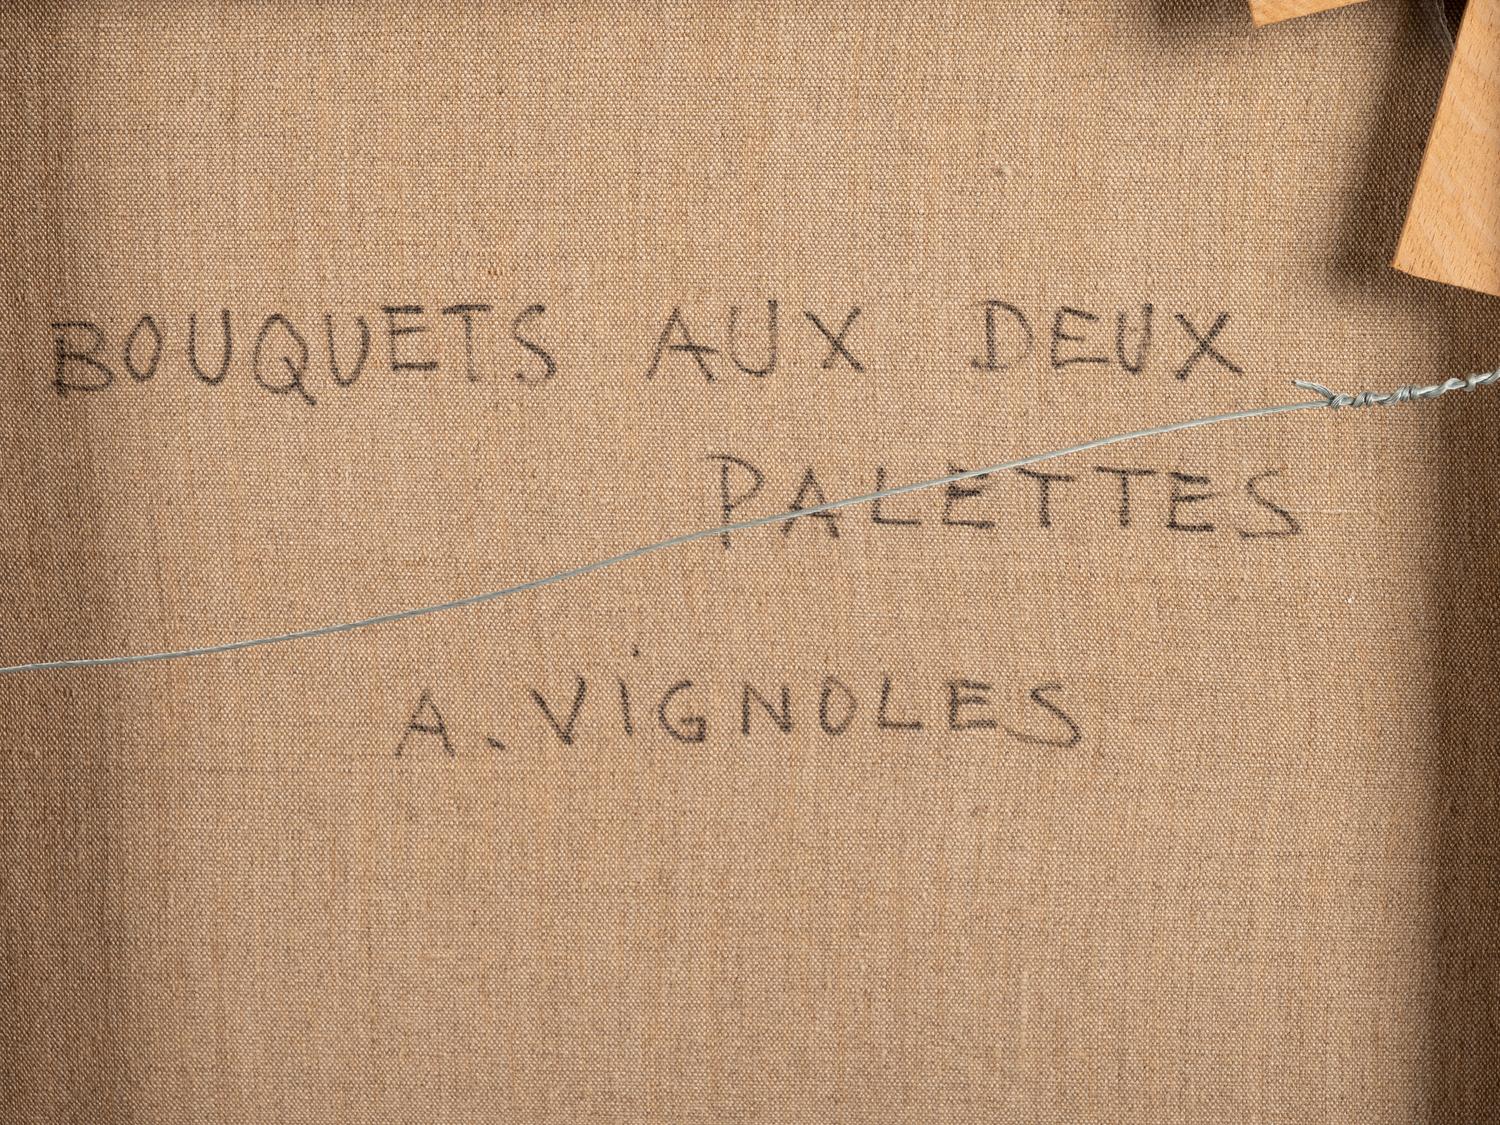 BOUQUETS AUX DEUX
PALETTES
A. VIGNOLES